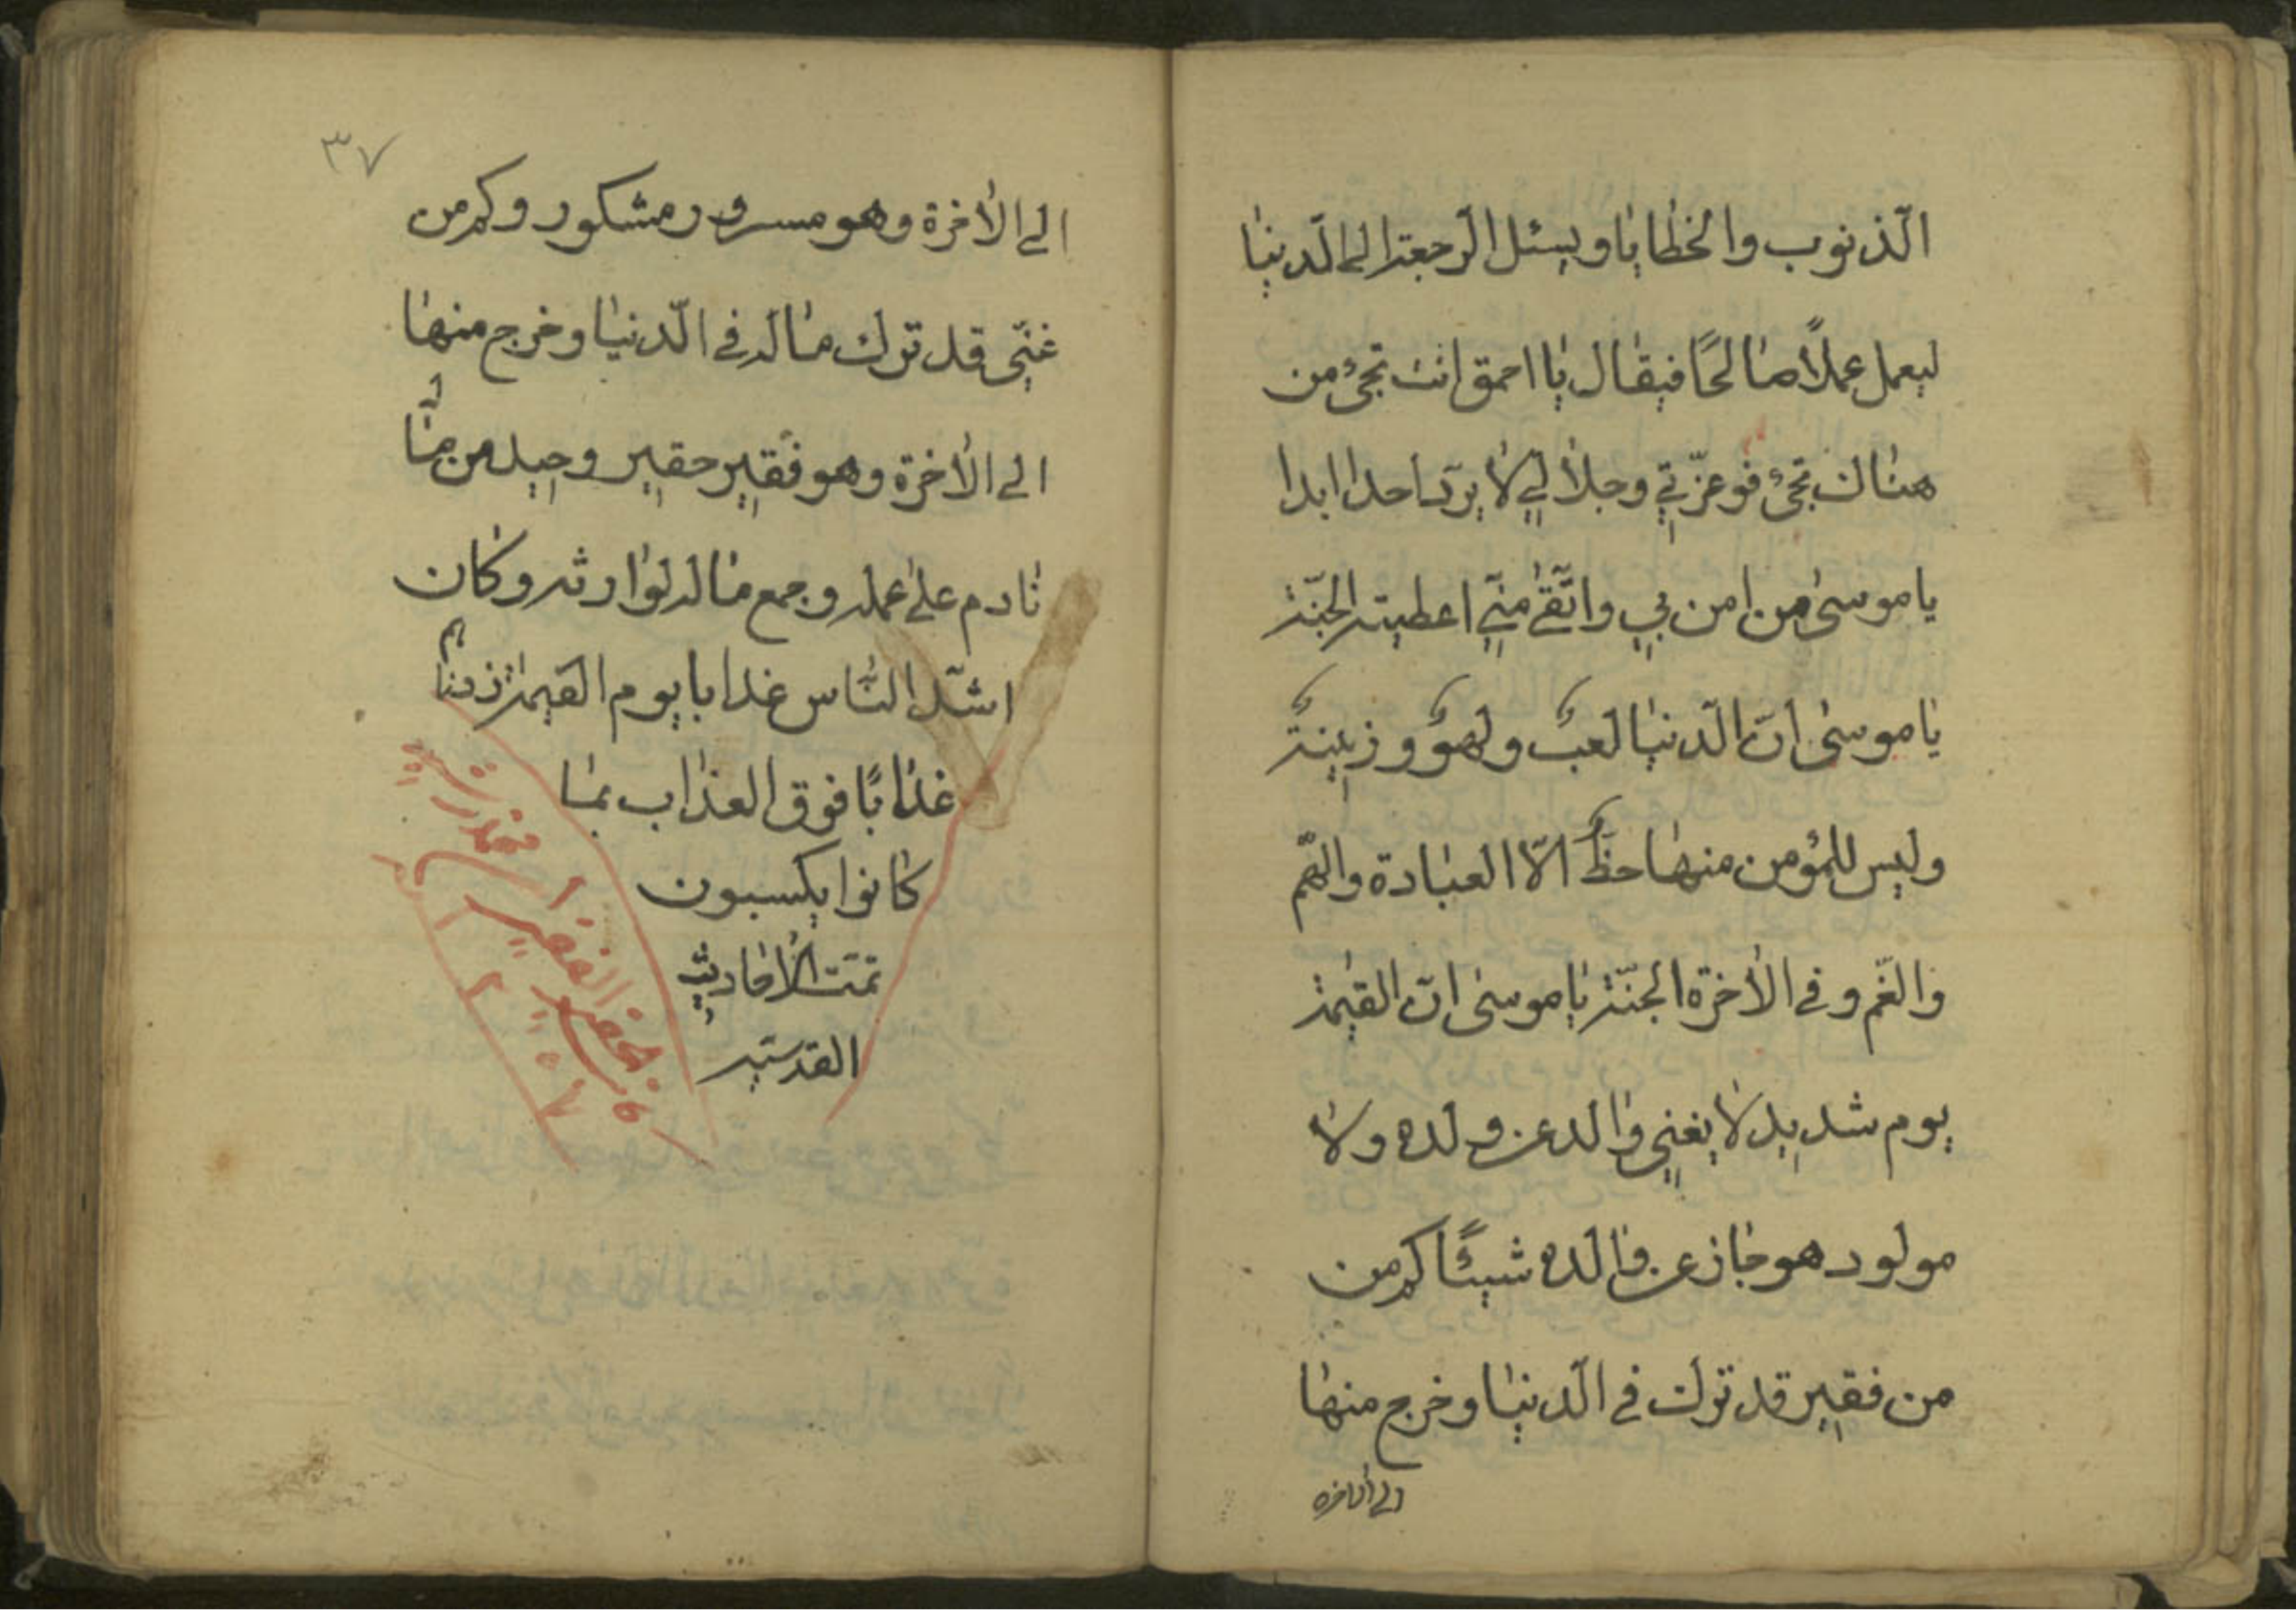 الذنوب والخطايا ويسئل الرجعة الى الدنيا
ليعمل عملاً صالحًا فيقال يا احمق انت تجئ من
هناك تجئ فوعزّتي وجلالي لا يردّ احدا ابدا
يا موسى من امن بي واتّقى منّي اعطيته الجنّة
يا موسى انّ الدّنيا لعبٌ ولهوٌ وزينة
وليس للمؤمن منها حظٌ الّا العبادة والهّم
والغّم وفي الاخرة الجنّة يا موسى انّ القيٰمة
يوم شديد لا يغني والد عن ولده ولا
مولود هو جاز عن والده شيئًا كم من
من فقير قد ترك في الدّنيا وخرج منها
الى الاخره
٣٧
الى الاخرة وهو مسرور مشكور وكم من
غنّي قد ترك ماله في الدّنيا وخرج منها
الى الاخرة وهو فقير حقير وحيد من
نادم على عمله وجمع ماله لوارثه وكان
اشدّ الناس عذابا يوم القيمة زدناهم
عذابًا فوق العذاب بما
كانوا يكسبون
تمّت الاحاديث
القدسيّه
الفقير